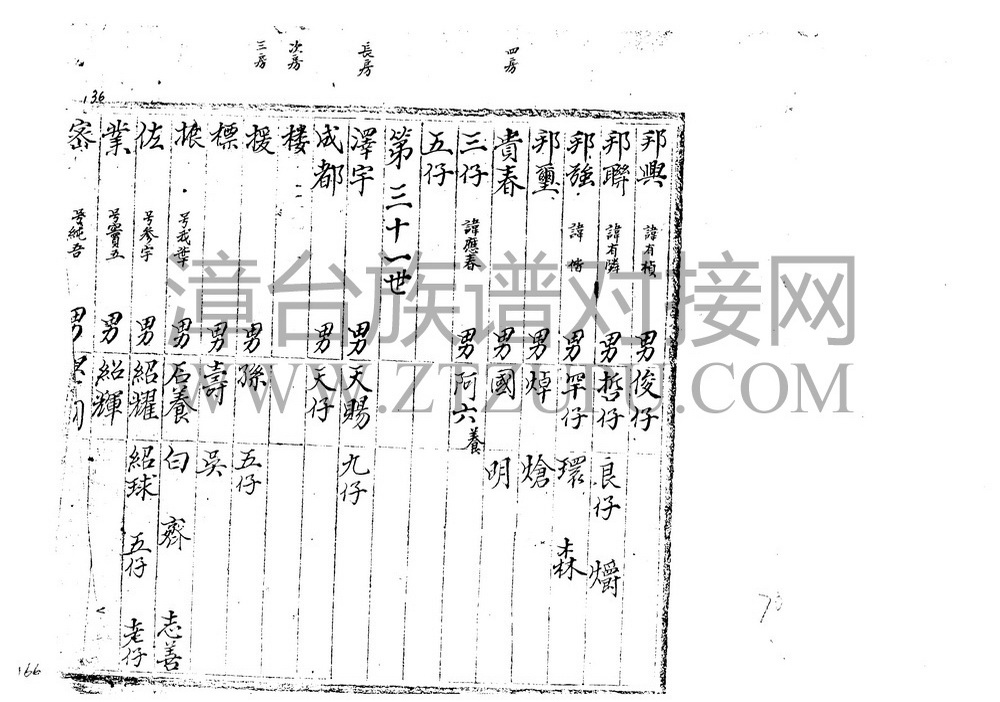 四房
長房
次房
三房
136
邦興 諱有楨 男 俊仔
邦聯 諱有隣 男 哲仔 良仔 爝
邦強 諱脩 男 罕仔 環 森
邦璽 男 焯 熗
貴春 男 國 明
三仔 諱應春 男 阿六養
五仔
第三十一世
澤宇 男 天賜 九仔
成都 男 天仔
楼
援 男 孫 五仔
標 男 壽 吳
振 号我葉 男 石養 白 齊 志善
佐 号參宇 男 紹耀 紹球 五仔 老仔
業 号賓五 男 紹輝
密 号純吾 男
166
70
漳台族谱对接网
WWW.ZTZUPU.COM